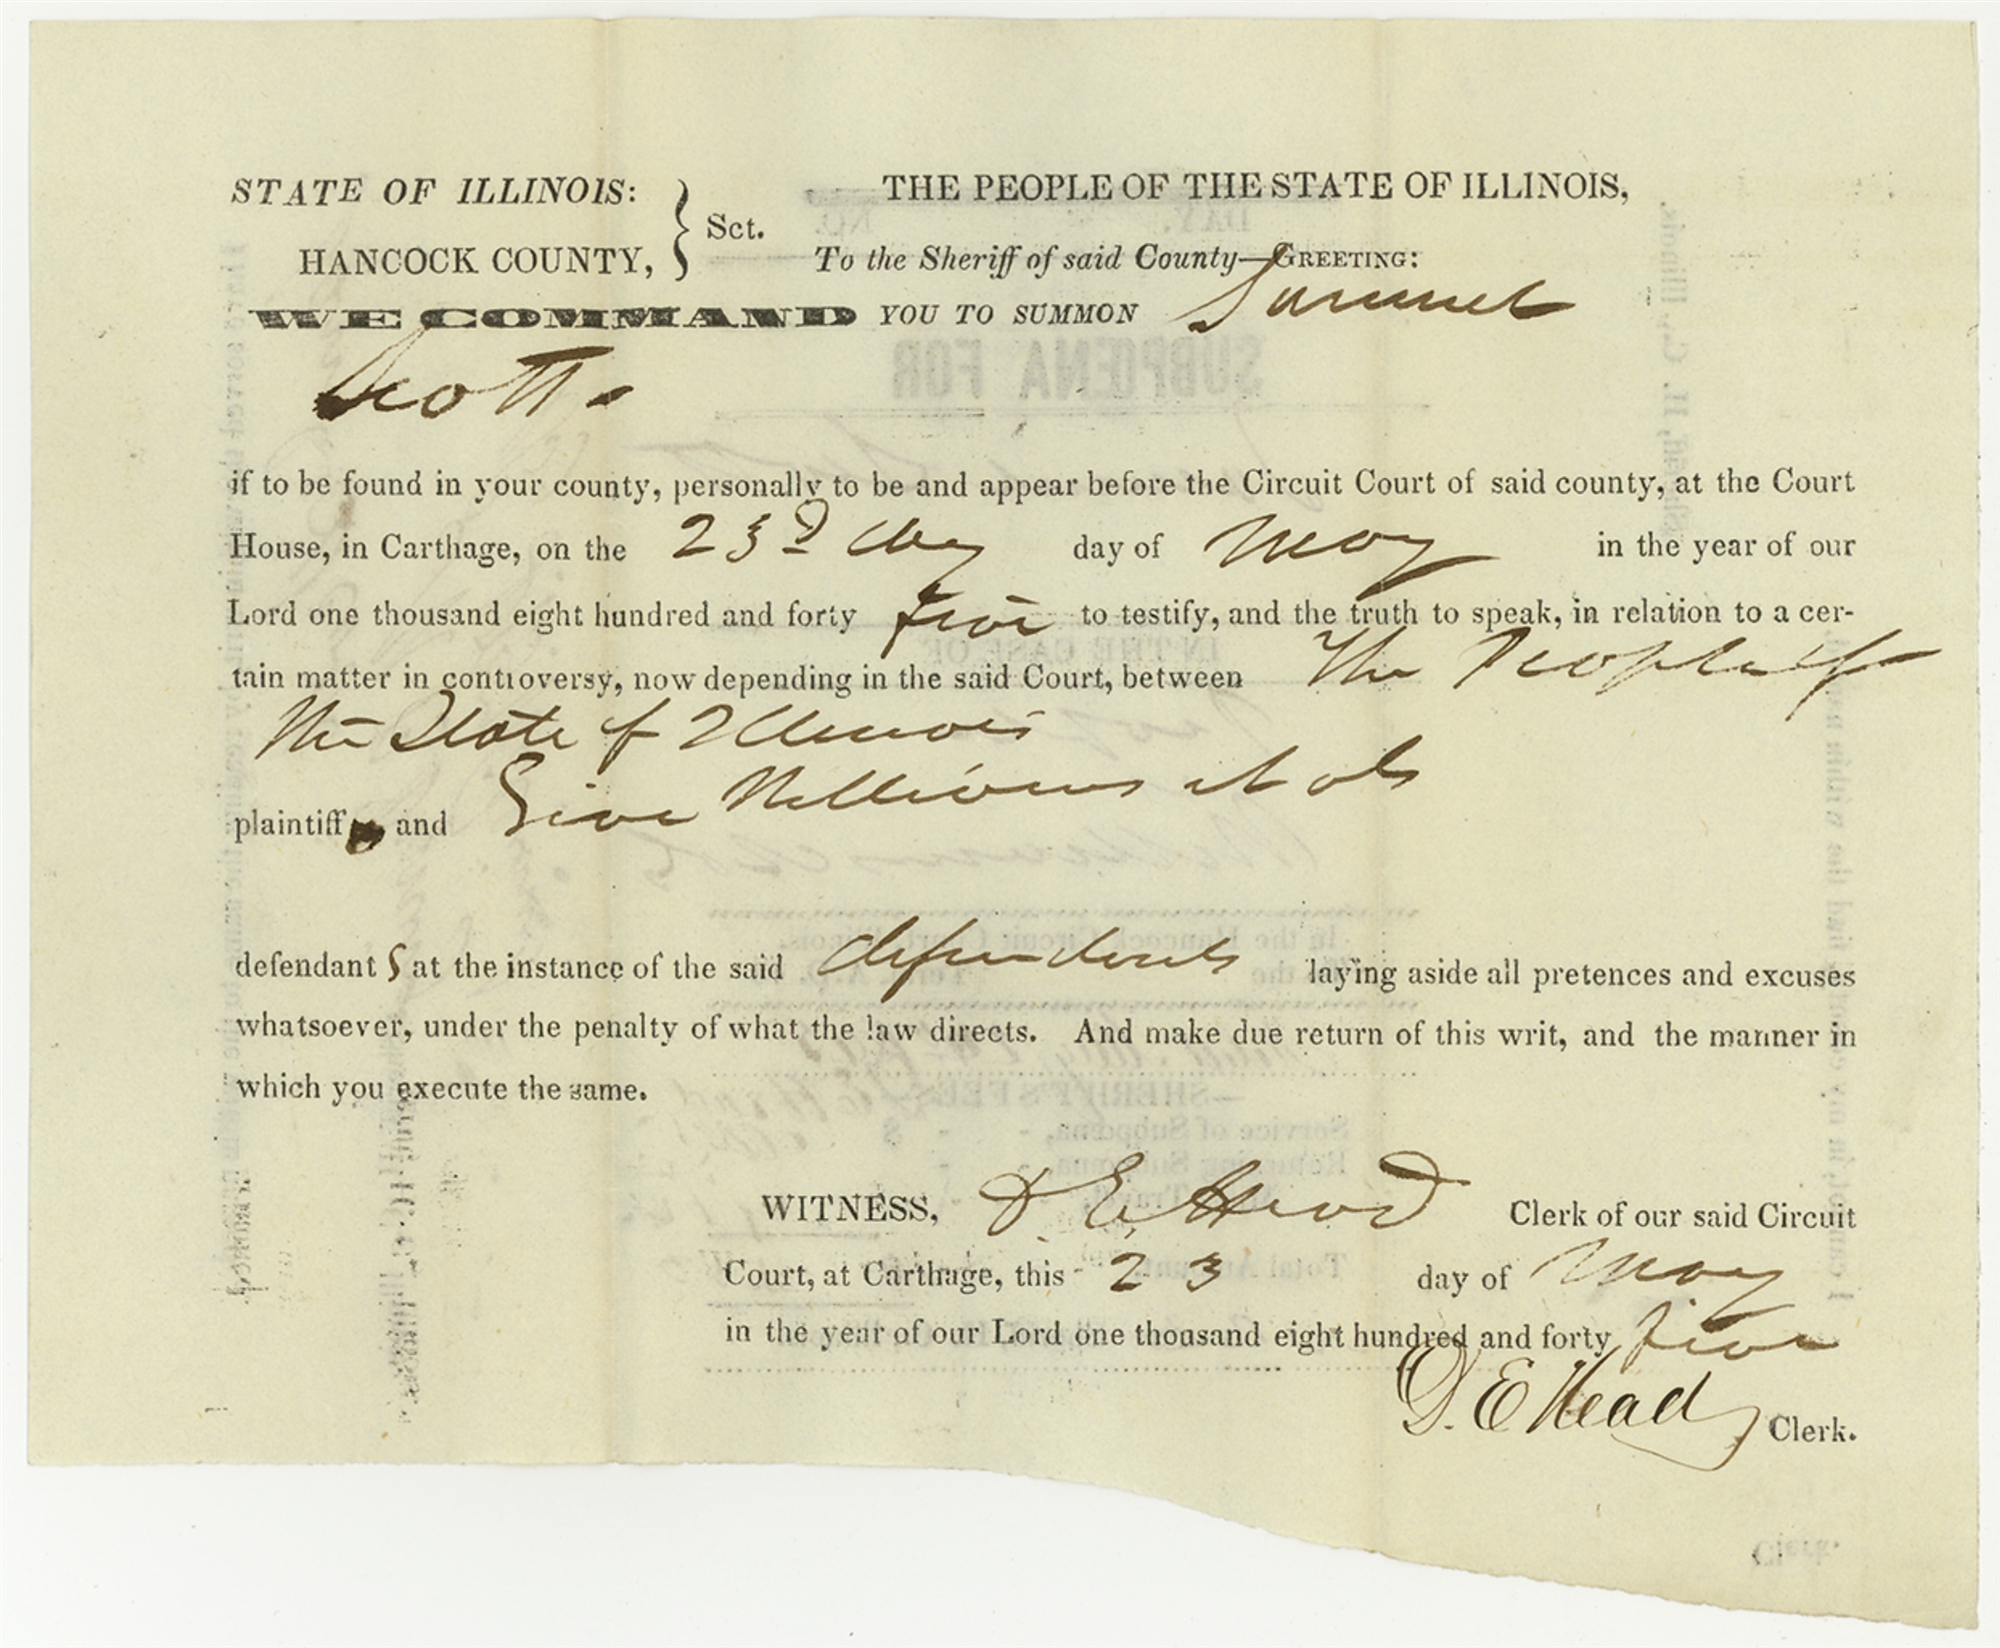 STATE OF ILLINOIS:
HANCOCK COUNTY,
} Sct.
THE PEOPLE OF THE STATE OF ILLINOIS,
To the Sheriff of said County—GREETING:
WE COMMAND YOU TO SUMMON Samuel
Scott.
if to be found in your county, personally to be and appear before the Circuit Court of said county, at the Court
House, in Carthage, on the 23d day day of May in the year of our
Lord one thousand eight hundred and forty five to testify, and the truth to speak, in relation to a cer-
tain matter in controversy, now depending in the said Court, between The People of
the State of Illinois
plaintiff and Williams et als
defendant s at the instance of the said defendants laying aside all pretences and excuses
whatsoever, under the penalty of what the law directs. And make due return of this writ, and the manner in
which you execute the same.
WITNESS, D E Head Clerk of our said Circuit
Court, at Carthage, this 23 day of May
in the year of our Lord one thousand eight hundred and forty five
D. E Head Clerk.